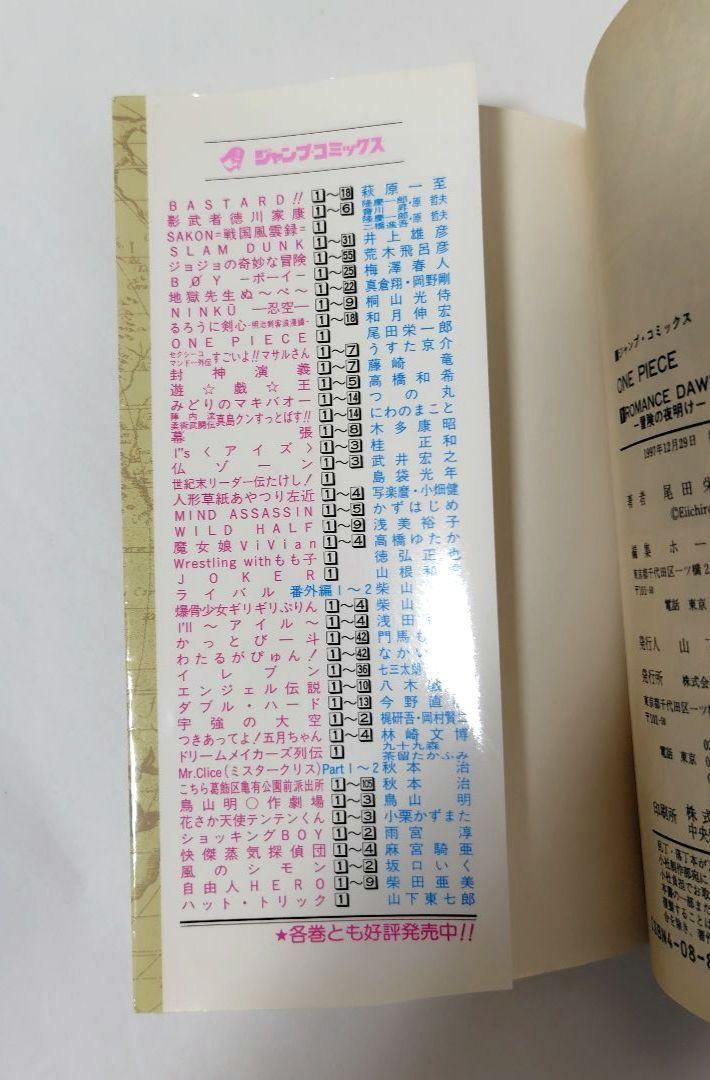 ジャンプ・コミックス
BASTARD!! 1〜18 萩原一至
影武者徳川家康 1〜6 隆慶一郎・原哲夫 會川昇
SAKON=戦国風雲録= 1 隆慶一郎・原哲夫 二橋進吾
SLAM DUNK 1〜31 井上雄彦
ジョジョの奇妙な冒険 1〜55 荒木飛呂彦
BØY ーボーイー 1〜25 梅澤春人
地獄先生ぬ〜べ〜 1〜22 真倉翔・岡野剛
NINKŪ ―忍空― 1〜9 桐山光侍
るろうに剣心-明治剣客浪漫譚- 1〜18 和月伸宏
ONE PIECE 1 尾田栄一郎
セクシーコマンドー外伝 すごいよ!!マサルさん 1〜7 うすた京介
封神演義 1〜7 藤崎竜
遊☆戯☆王 1〜5 高橋和希
みどりのマキバオー 1〜14 つの丸
陣内流柔術武闘伝 真島クンすっとばす!! 1〜14 にわのまこと
幕張 1〜8 木多康昭
I"s〈アイズ〉 1〜3 桂正和
仏ゾーン 1〜3 武井宏之
世紀末リーダー伝たけし! 1 島袋光年
人形草紙あやつり左近 1〜4 写楽麿・小畑健
MIND ASSASSIN 1〜5 かずはじめ
WILD HALF 1〜9 浅美裕子
魔女娘ViVian 1〜4 高橋ゆたか
Wrestling withもも子 1 徳弘正也
JOKER 1 山根和
ライバル 番外編1〜2 柴山
爆骨少女ギリギリぷりん 1〜4 柴山
I'll 〜アイル〜 1〜4 浅田
かっとび一斗 1〜42 門馬も
わたるがぴゅん! 1〜42 なかい
イレブン 1〜36 七三太朗
エンジェル伝説 1〜10 八木
ダブル・ハード 1〜13 今野直
宇強の大空 1〜2 梶研吾・岡村賢二
つきあってよ!五月ちゃん 1〜4 林崎文博
ドリームメイカーズ列伝 1 九十九森 茶留たかふみ
Mr.Clice(ミスタークリス) Part1〜2 秋本治
こちら葛飾区亀有公園前派出所 1〜105 秋本治
鳥山明○作劇場 1〜3 鳥山明
花さか天使テンテンくん 1〜3 小栗かずまた
ショッキングBOY 1〜2 雨宮淳
快傑蒸気探偵団 1〜4 麻宮騎亜
風のシモン 1〜2 坂口いく
自由人HERO 1〜9 柴田亜美
ハット・トリック 1 山下東七郎
★各巻とも好評発売中!!
ジャンプ・コミックス
ONE PIECE
1 ROMANCE DAW
―冒険の夜明け―
1997年12月29日
著者 尾田栄
©Eiichiro
編集 ホー
東京都千代田区一ツ橋2
〒101-50
電話 東京
発行人 山下
発行所 株式会
東京都千代田区一ツ橋
〒101-50
電話 東京
印刷所 株式
中央
乱丁・落丁本が
小社製作部宛に
小社負担でお取
本書の一部また
複製することは
合を除き、著作
ISBN4-08-8